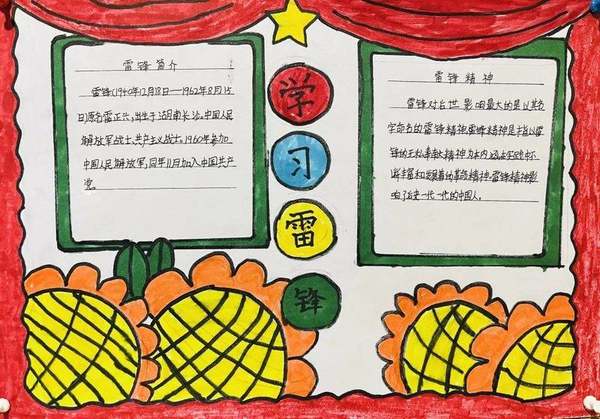 雷锋简介
雷锋(1940年12月18日—1962年8月15
日)原名雷正兴,出生于湖南长沙,中国人民
解放军战士,共产主义战士,1960年参加
中国人民解放军,同年11月加入中国共产
党。
学
习
雷
锋
雷锋精神
雷锋对后世影响最大的是以其名
字命名的雷锋精神,雷锋精神是指以雷
锋的无私奉献精神为本内涵在实践中怀
丰富和发展着的革命精神,雷锋精神影
响了后来一代一代的中国人。